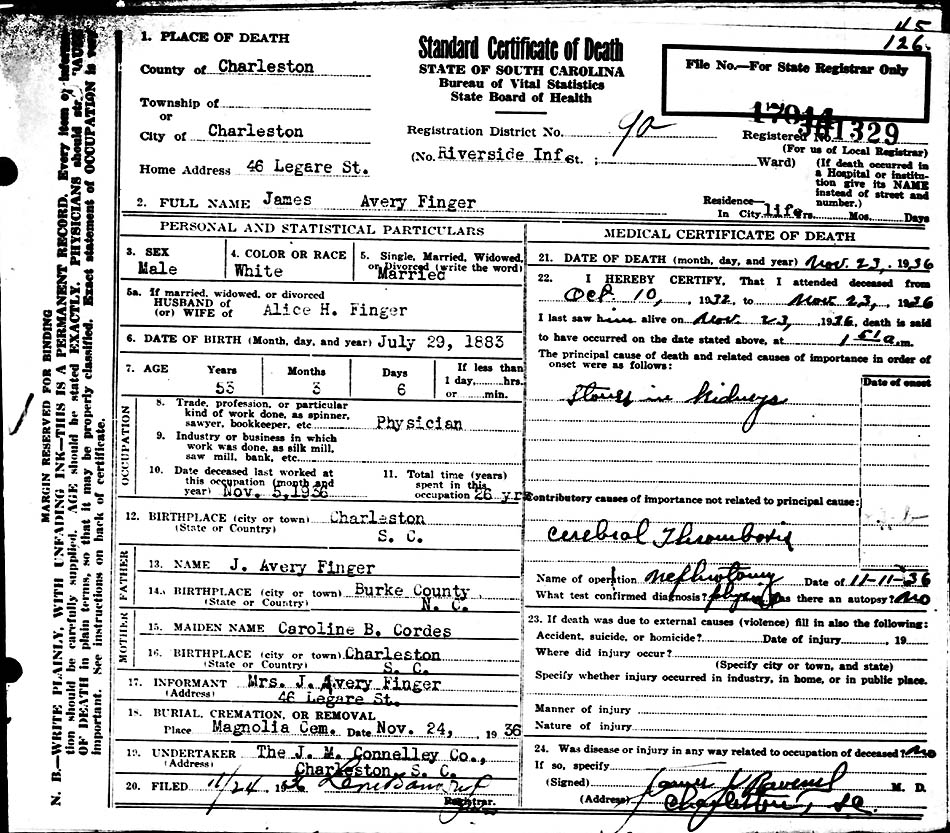 45
126.
1. PLACE OF DEATH
County of Charleston
Township of
or
City of Charleston
Home Address 46 Legare St.
Standard Certificate of Death
STATE OF SOUTH CAROLINA
Bureau of Vital Statistics
State Board of Health
Registration District No. 9a
(No. Riverside Inf. St. ; Ward)
File No.—For State Registrar Only
17044
Registered No. 1329
(For us of Local Registrar)
(If death occurred in
a Hospital or institu-
tion give its NAME
instead of street and
number.)
2. FULL NAME James Avery Finger
Residence
In City life Yrs. Mos. Days
PERSONAL AND STATISTICAL PARTICULARS
3. SEX
Male
4. COLOR OR RACE
White
5. Single, Married, Widowed,
or Divorced (write the word)
Married
5a. If married, widowed, or divorced
HUSBAND OF
(or) WIFE OF Alice H. Finger
6. DATE OF BIRTH (Month, day, and year) July 29, 1883
7. AGE Years Months Days If less than
53 3 6 1 day, hrs.
or min.
OCCUPATION
8. Trade, profession, or particular
kind of work done, as spinner,
sawyer, bookkeeper, etc Physician
9. Industry or business in which
work was done, as silk mill,
saw mill, bank, etc.
10. Date deceased last worked at
this occupation (month and
year) Nov. 5, 1936
11. Total time (years)
spent in this
occupation 26 yrs
12. BIRTHPLACE (city or town) Charleston
(State or Country) S. C.
FATHER
13. NAME J. Avery Finger
14. BIRTHPLACE (city or town) Burke County
(State or Country) N. C.
MOTHER
15. MAIDEN NAME Caroline B. Cordes
16. BIRTHPLACE (city or town) Charleston
(State or Country) S. C.
17. INFORMANT Mrs. J. Avery Finger
(Address) 46 Legare St.
18. BURIAL, CREMATION, OR REMOVAL
Place Magnolia Cem. Date Nov. 24, 1936
19. UNDERTAKER The J. M. Connelley Co.,
(Address) Charleston, S. C.
20. FILED 11/24 1936
Registrar.
MEDICAL CERTIFICATE OF DEATH
21. DATE OF DEATH (month, day, and year) Nov. 23, 1936
22. I HEREBY CERTIFY, That I attended deceased from
Oct. 10, 1932, to Nov. 23, 1936
I last saw him alive on Nov. 23, 1936, death is said
to have occurred on the date stated above, at 1 51 a.m.
The principal cause of death and related causes of importance in order of
onset were as follows:
Date of onset
Stones in kidneys
Contributory causes of importance not related to principal cause:
Cerebral Thrombosis
Name of operation Nephrotomy Date of 11-11-36
What test confirmed diagnosis? Was there an autopsy? No
23. If death was due to external causes (violence) fill in also the following:
Accident, suicide, or homicide? Date of injury , 19
Where did injury occur?
(Specify city or town, and state)
Specify whether injury occurred in industry, in home, or in public place.
Manner of injury
Nature of injury
24. Was disease or injury in any way related to occupation of deceased? No
If so, specify
(Signed) James J Ravenel M. D.
(Address) Charleston, S.C.
N. B.—WRITE PLAINLY, WITH UNFADING INK—THIS IS A PERMANENT RECORD. Every item of
tion should be carefully supplied. AGE should be stated EXACTLY. PHYSICIANS should
OF DEATH in plain terms, so that it may be properly classified. Exact statement of OCCUPATION is very
important. See instructions on back of certificate.
MARGIN RESERVED FOR BINDING